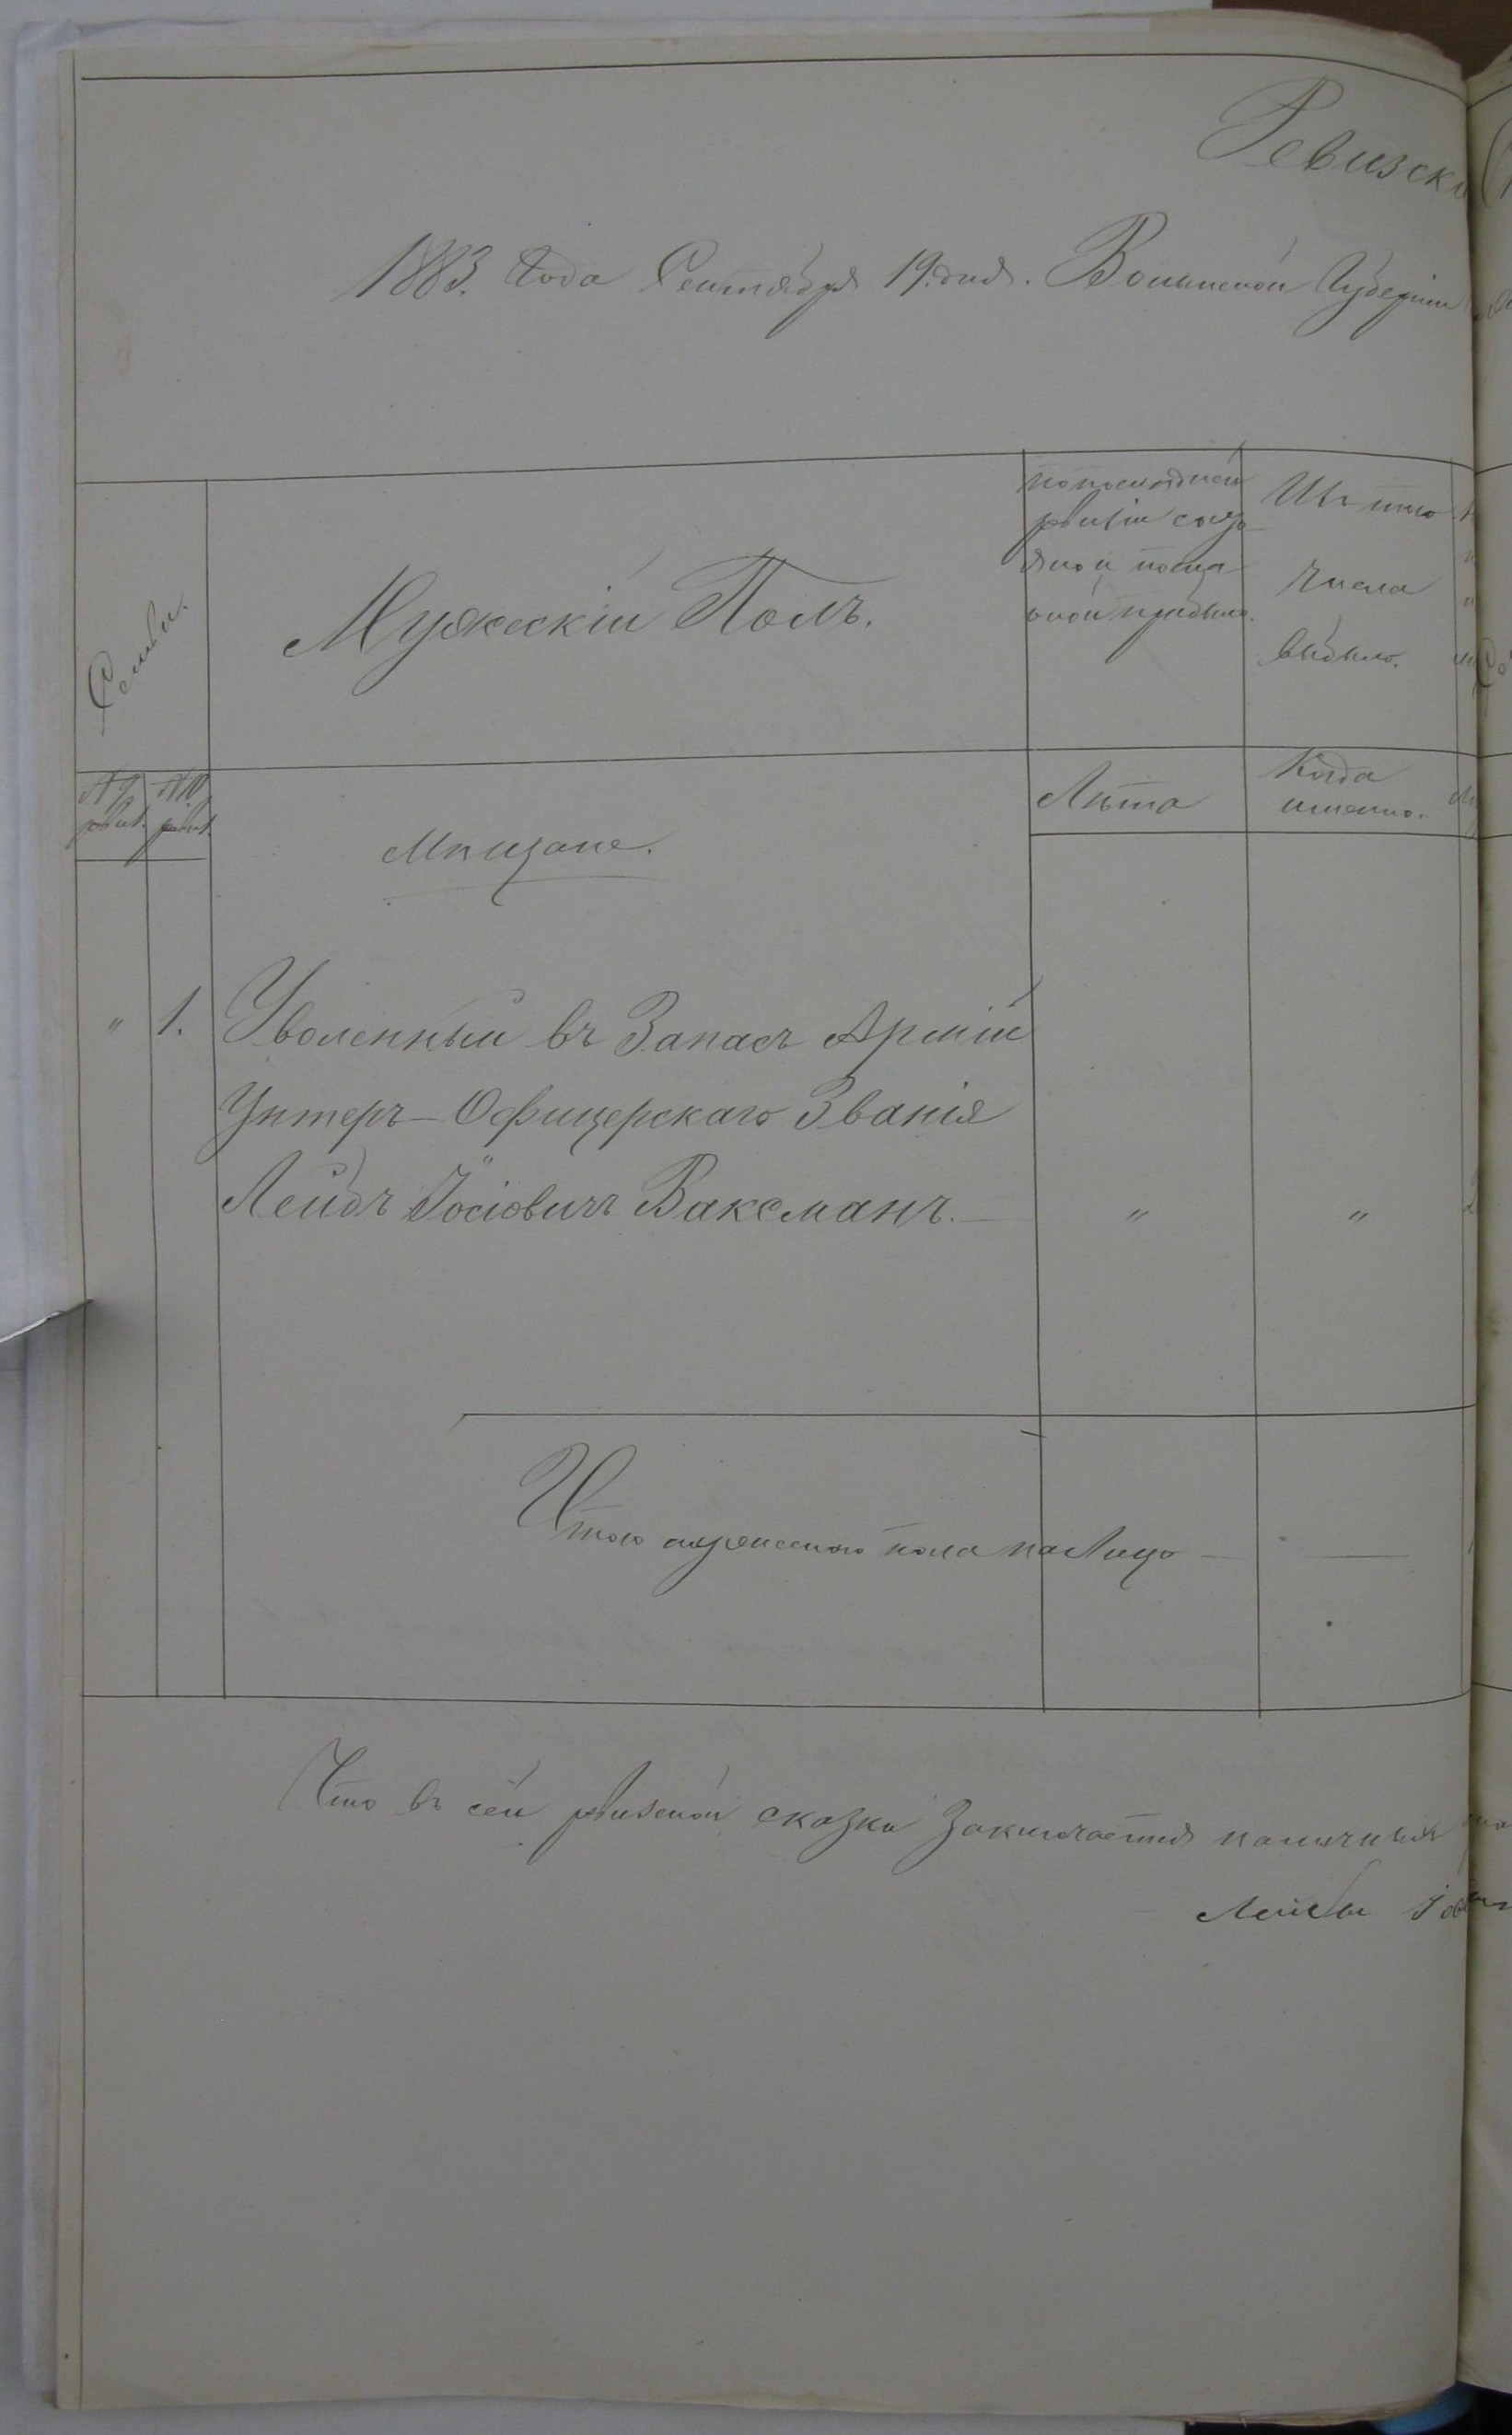 Ревизска
1883. Года Сентября 19. дня. Волынской Губерніи
Семьи.
Мужескій Полъ.
по последней
ревизіи состо
яло и после
оной прибыло.
Изъ того
числа
выбыло.
№ 9 ревиз.
№ 10 ревиз.
Мѣщане.
Лѣта
Когда
именно.
" 1. Уволенный въ Запасъ Арміи
Унтеръ-Офицерскаго Званія
Лейбъ Іосіовичъ Ваксманъ. — " "
Итого мужескаго пола на Лицо — —
Что въ сей ревизской сказки Заключается наличныхъ
Лейбы